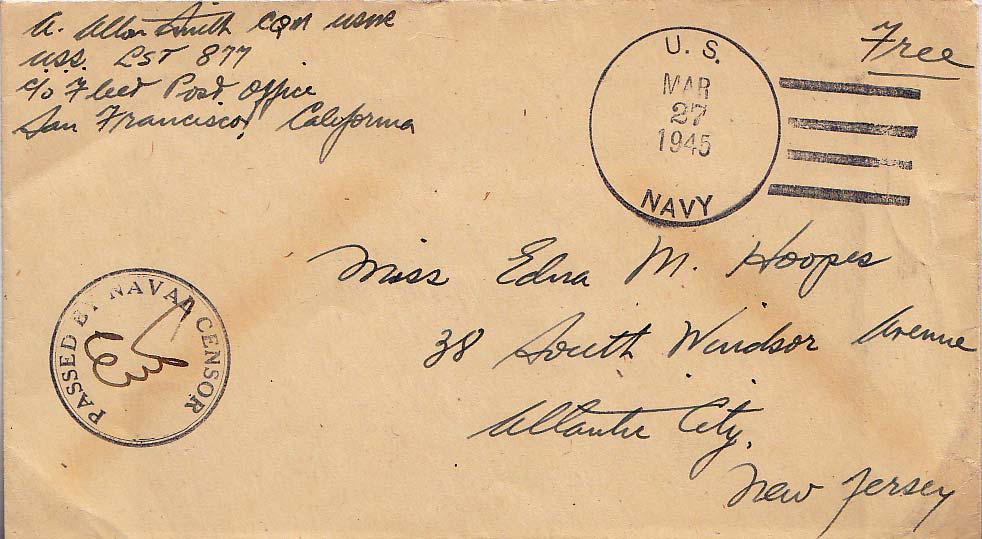 A. Allan Smith CQM USNR
U.S.S. LST 877
c/o Fleet Post Office
San Francisco, California
Free
U. S.
MAR
27
1945
NAVY
Miss Edna M. Hoopes
38 South Windsor Avenue
Atlantic City,
New Jersey
PASSED BY NAVAL CENSOR